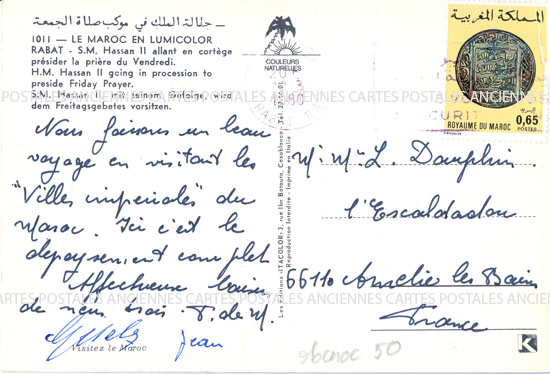 جلالة الملك في موكب صلاة الجمعة
1011 — LE MAROC EN LUMICOLOR
RABAT - S.M. Hassan II allant en cortège
présider la prière du Vendredi.
H.M. Hassan II going in procession to
preside Friday Prayer.
S.M. Hassan II mit seinem Gefolge, wird
dem Freitagsgebetes vorsitzen.
COULEURS
NATURELLES
المملكة المغربية
0,65
ROYAUME DU MAROC POSTES
CARTES POSTALES ANCIENNES CARTES POSTALES ANCIENNES
Nous faisons un beau
voyage en visitant les
"Villes impériales" du
Maroc. Ici c'est le
depaysement complet
Affectueux baisers
de nous trois P. de M.
Jean
Visitez le Maroc
Les Editions "ITACOLOR", rue Ibn Batouta, Casablanca - Tel.
Reproduction Interdite - Imprimé en Italie
M. Me L. Dauphin
l'Escaldadou
66110 Amélie les Bains
France
CARTES POSTALES ANCIENNES CARTES POSTALES ANCIENNES
Maroc 50
K